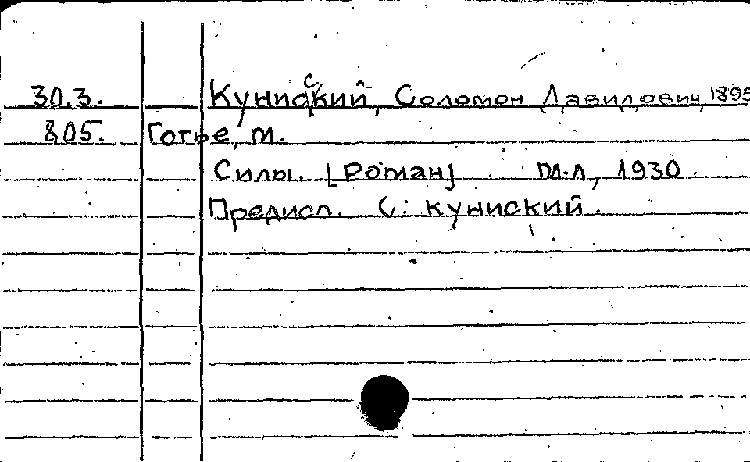 30.3. Куниский, Соломон Давидович, 1895
805. Готье, М.
Силы. [Роман] М.-Л., 1930
Предисл. С. Куниский.